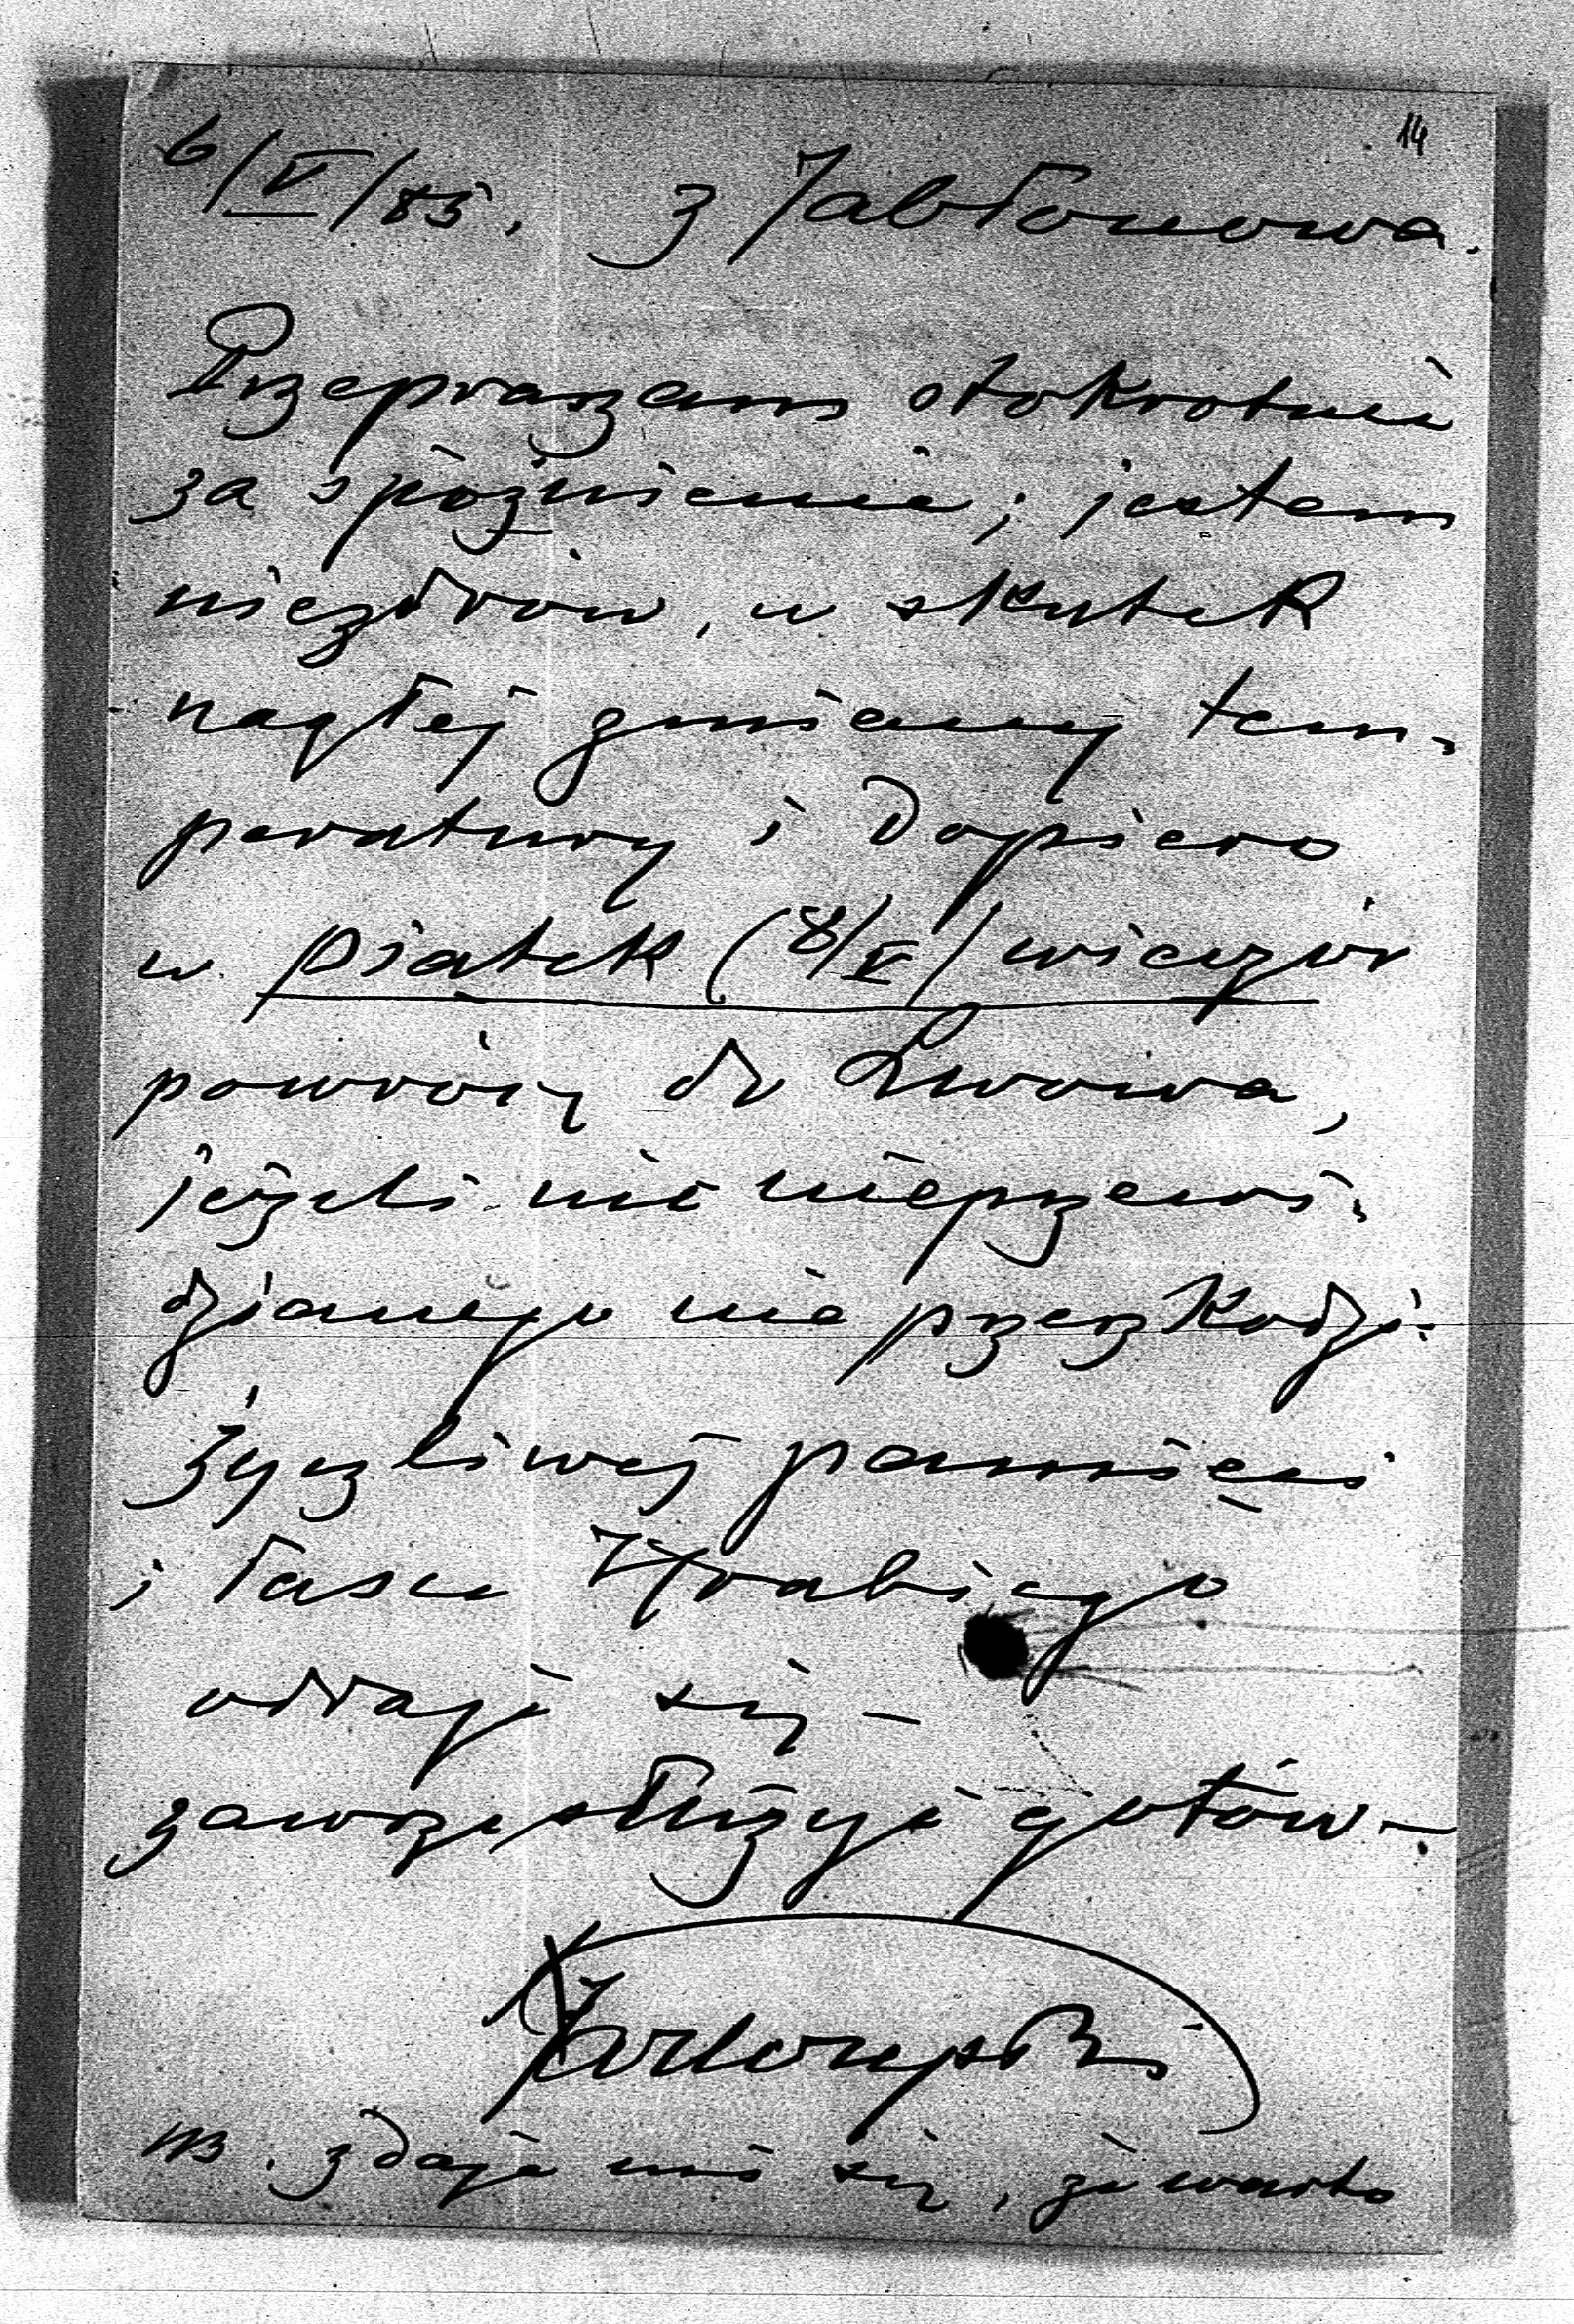 14
6/V/85. z Jabłonowa.
Przepraszam stokrotnie
za spóźnienie; jestem
niezdrów, w skutek
nagłej zmiany tem-
peratury i dopiero
w piątek (8/V/ wieczór
powrócę do Lwowa,
jeżeli nic nieprzewi-
dzianego nie przeszkodzi.
Życzliwej pamięci
i łasce Hrabiego
oddaję się –
zawsze służyć gotów –
NB. zdaje mi się, że warto